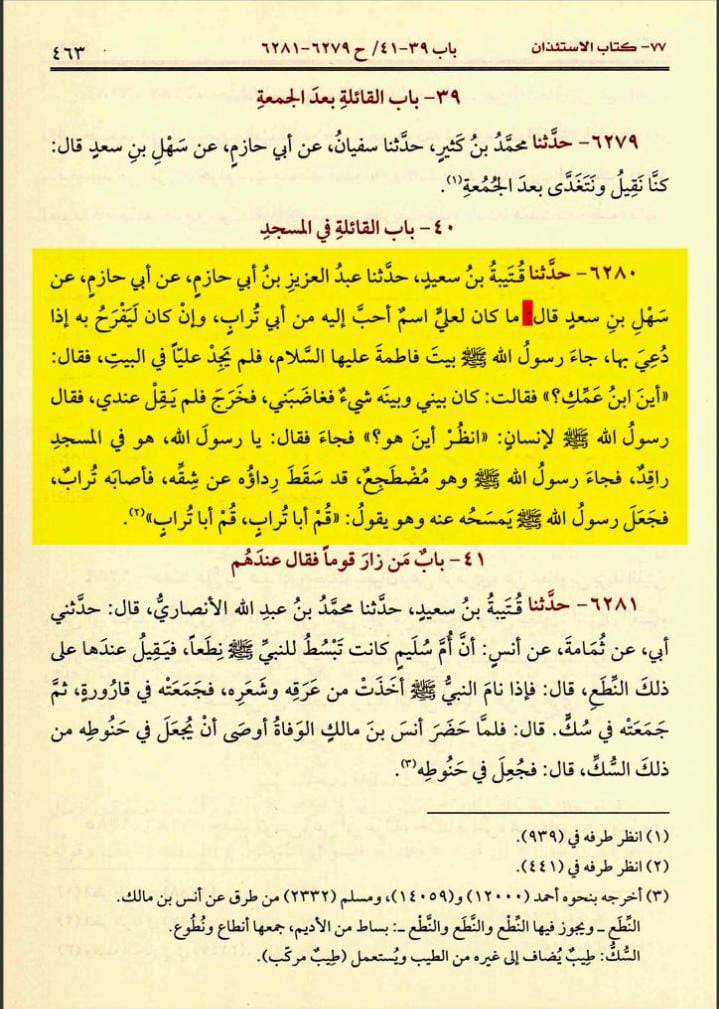 ٧٧- كتاب الاستئذان باب ٣٩-٤١/ ح ٦٢٧٩-٦٢٨١ ٤٦٣
٣٩- باب القائلةِ بعدَ الجمعةِ
٦٢٧٩- حدَّثنا محمَّدُ بنُ كَثيرٍ، حدَّثنا سفيانُ، عن أبي حازمٍ، عن سَهْلِ بنِ سعدٍ قال:
كنَّا نَقِيلُ ونَتَغَدَّى بعدَ الجُمُعةِ(١).
٤٠- باب القائلةِ في المسجدِ
٦٢٨٠- حدَّثنا قُتَيبةُ بنُ سعيدٍ، حدَّثنا عبدُ العزيزِ بنُ أبي حازمٍ، عن أبي حازمٍ، عن
سَهْلِ بنِ سعدٍ قال: ما كان لعليٍّ اسمٌ أحبَّ إليه من أبي تُرابٍ، وإنْ كان لَيَفْرَحُ به إذا
دُعِيَ بها، جاءَ رسولُ الله ﷺ بيتَ فاطمةَ عليها السَّلام، فلم يَجِدْ عليّاً في البيتِ، فقال:
«أينَ ابنُ عَمِّكِ؟» فقالت: كان بيني وبينَه شيءٌ فغاضَبَني، فخَرَجَ فلم يَقِلْ عندي، فقال
رسولُ الله ﷺ لإنسانٍ: «انظُرْ أينَ هو؟» فجاءَ فقال: يا رسولَ الله، هو في المسجدِ
راقِدٌ، فجاءَ رسولُ الله ﷺ وهو مُضْطَجِعٌ، قد سَقَطَ رِداؤُه عن شِقِّه، فأصابَه تُرابٌ،
فجَعَلَ رسولُ الله ﷺ يَمسَحُه عنه وهو يقولُ: «قُمْ أبا تُرابٍ، قُمْ أبا تُرابٍ»(٢).
٤١- بابُ مَن زارَ قوماً فقال عندَهُم
٦٢٨١- حدَّثنا قُتَيبةُ بنُ سعيدٍ، حدَّثنا محمَّدُ بنُ عبدِ الله الأنصاريُّ، قال: حدَّثني
أبي، عن ثُمَامةَ، عن أنسٍ: أنَّ أُمَّ سُلَيمٍ كانت تَبْسُطُ للنبيِّ ﷺ نِطَعاً، فيَقِيلُ عندَها على
ذلكَ النِّطَعِ، قال: فإذا نامَ النبيُّ ﷺ أخَذَتْ من عَرَقِه وشَعَرِه، فجَمَعَتْه في قارُورةٍ، ثمَّ
جَمَعَتْه في سُكٍّ. قال: فلمَّا حَضَرَ أنسَ بنَ مالكٍ الوَفاةُ أوصَى أنْ يُجعَلَ في حَنُوطِه من
ذلكَ السُّكِّ، قال: فجُعِلَ في حَنُوطِه(٣).
(١) انظر طرفه في (٩٣٩).
(٢) انظر طرفه في (٤٤١).
(٣) أخرجه بنحوه أحمد (١٢٠٠٠) و(١٤٠٥٩)، ومسلم (٢٣٣٢) من طرق عن أنس بن مالك.
النِّطَع ـ ويجوز فيها النِّطْع والنَّطَع والنَّطْع ـ: بساط من الأديم، جمعها أنطاع ونُطُوع.
السُّكُّ: طِيبٌ يُضاف إلى غيره من الطيب ويُستعمل (طِيبٌ مركّب).